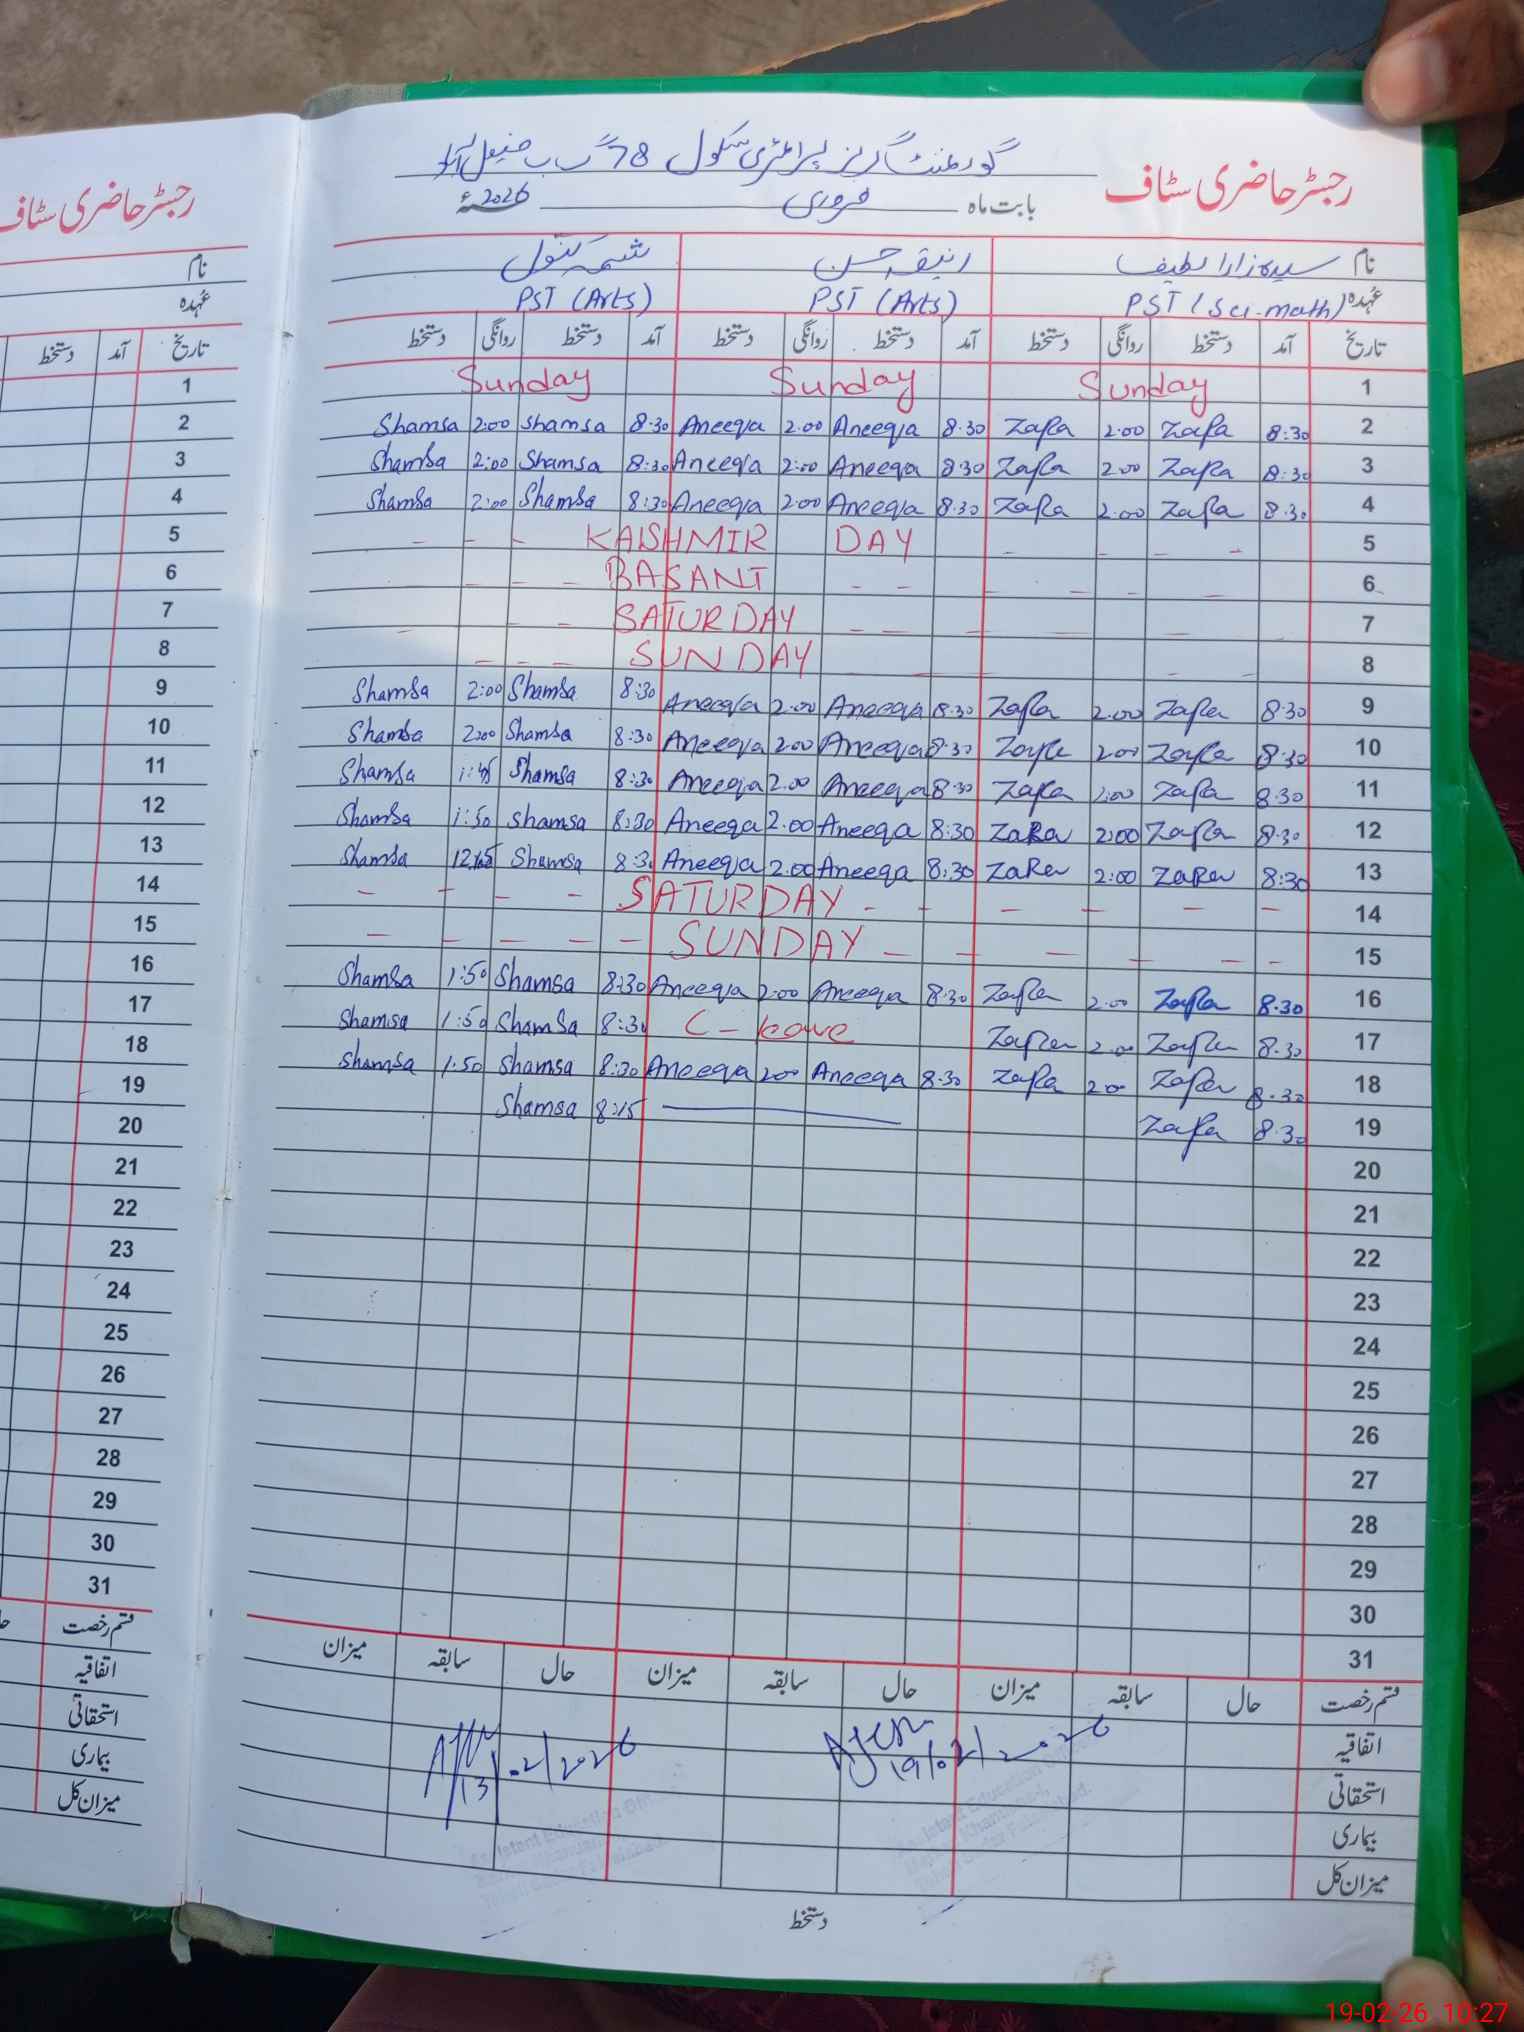 رجسٹر حاضری سٹاف
گورنمنٹ گرلز پرائمری سکول 78 گ ب
بابت ماہ فروری 2026ء
نام سیدہ زارا لطیف انیقہ حسن شمسہ کنول
عہدہ PST (Sci-math) PST (Arts) PST (Arts)
تاریخ آمد دستخط روانگی دستخط آمد دستخط روانگی دستخط آمد دستخط روانگی دستخط
1 Sunday Sunday Sunday
2 8:30 Zafra 2:00 Zafra 8:30 Aneeqa 2:00 Aneeqa 8:30 Shamsa 2:00 Shamsa
3 8:30 Zafra 2:00 Zafra 8:30 Aneeqa 2:00 Aneeqa 8:30 Shamsa 2:00 Shamsa
4 8:30 Zafra 2:00 Zafra 8:30 Aneeqa 2:00 Aneeqa 8:30 Shamsa 2:00 Shamsa
5 KAISHMIR DAY
6 BASANT
7 SATURDAY
8 SUNDAY
9 8:30 Zafra 2:00 Zafra 8:30 Aneeqa 2:00 Aneeqa 8:30 Shamsa 2:00 Shamsa
10 8:30 Zafra 2:00 Zafra 8:30 Aneeqa 2:00 Aneeqa 8:30 Shamsa 2:00 Shamsa
11 8:30 Zafra 2:00 Zafra 8:30 Aneeqa 2:00 Aneeqa 8:30 Shamsa 1:45 Shamsa
12 8:30 Zafra 2:00 ZaRa 8:30 Aneeqa 2:00 Aneeqa 8:30 Shamsa 1:50 Shamsa
13 8:30 ZaRa 2:00 ZaRa 8:30 Aneeqa 2:00 Aneeqa 8:30 Shamsa Shamsa
14 SATURDAY
15 SUNDAY
16 8:30 Zafra 2:00 Zafra 8:30 Aneeqa 2:00 Aneeqa 8:30 Shamsa 1:50 Shamsa
17 8:30 Zafra 2:00 Zafra C-leave 8:30 Shamsa 1:50 Shamsa
18 8:30 Zafra 2:00 Zafra 8:30 Aneeqa 2:00 Aneeqa 8:30 Shamsa 1:50 Shamsa
19 8:30 Zafra 8:15 Shamsa
20
21
22
23
24
25
26
27
28
29
30
31
قسم رخصت حال سابقہ میزان حال سابقہ میزان حال سابقہ میزان
اتفاقیہ
استحقاقی
بیماری
میزان کل
19/02/2026
13/02/2026
Assistant Education
دستخط
رجسٹر حاضری سٹاف
نام
عہدہ
تاریخ آمد دستخط
1
2
3
4
5
6
7
8
9
10
11
12
13
14
15
16
17
18
19
20
21
22
23
24
25
26
27
28
29
30
31
قسم رخصت
اتفاقیہ
استحقاقی
بیماری
میزان کل
19-02-26 10:27